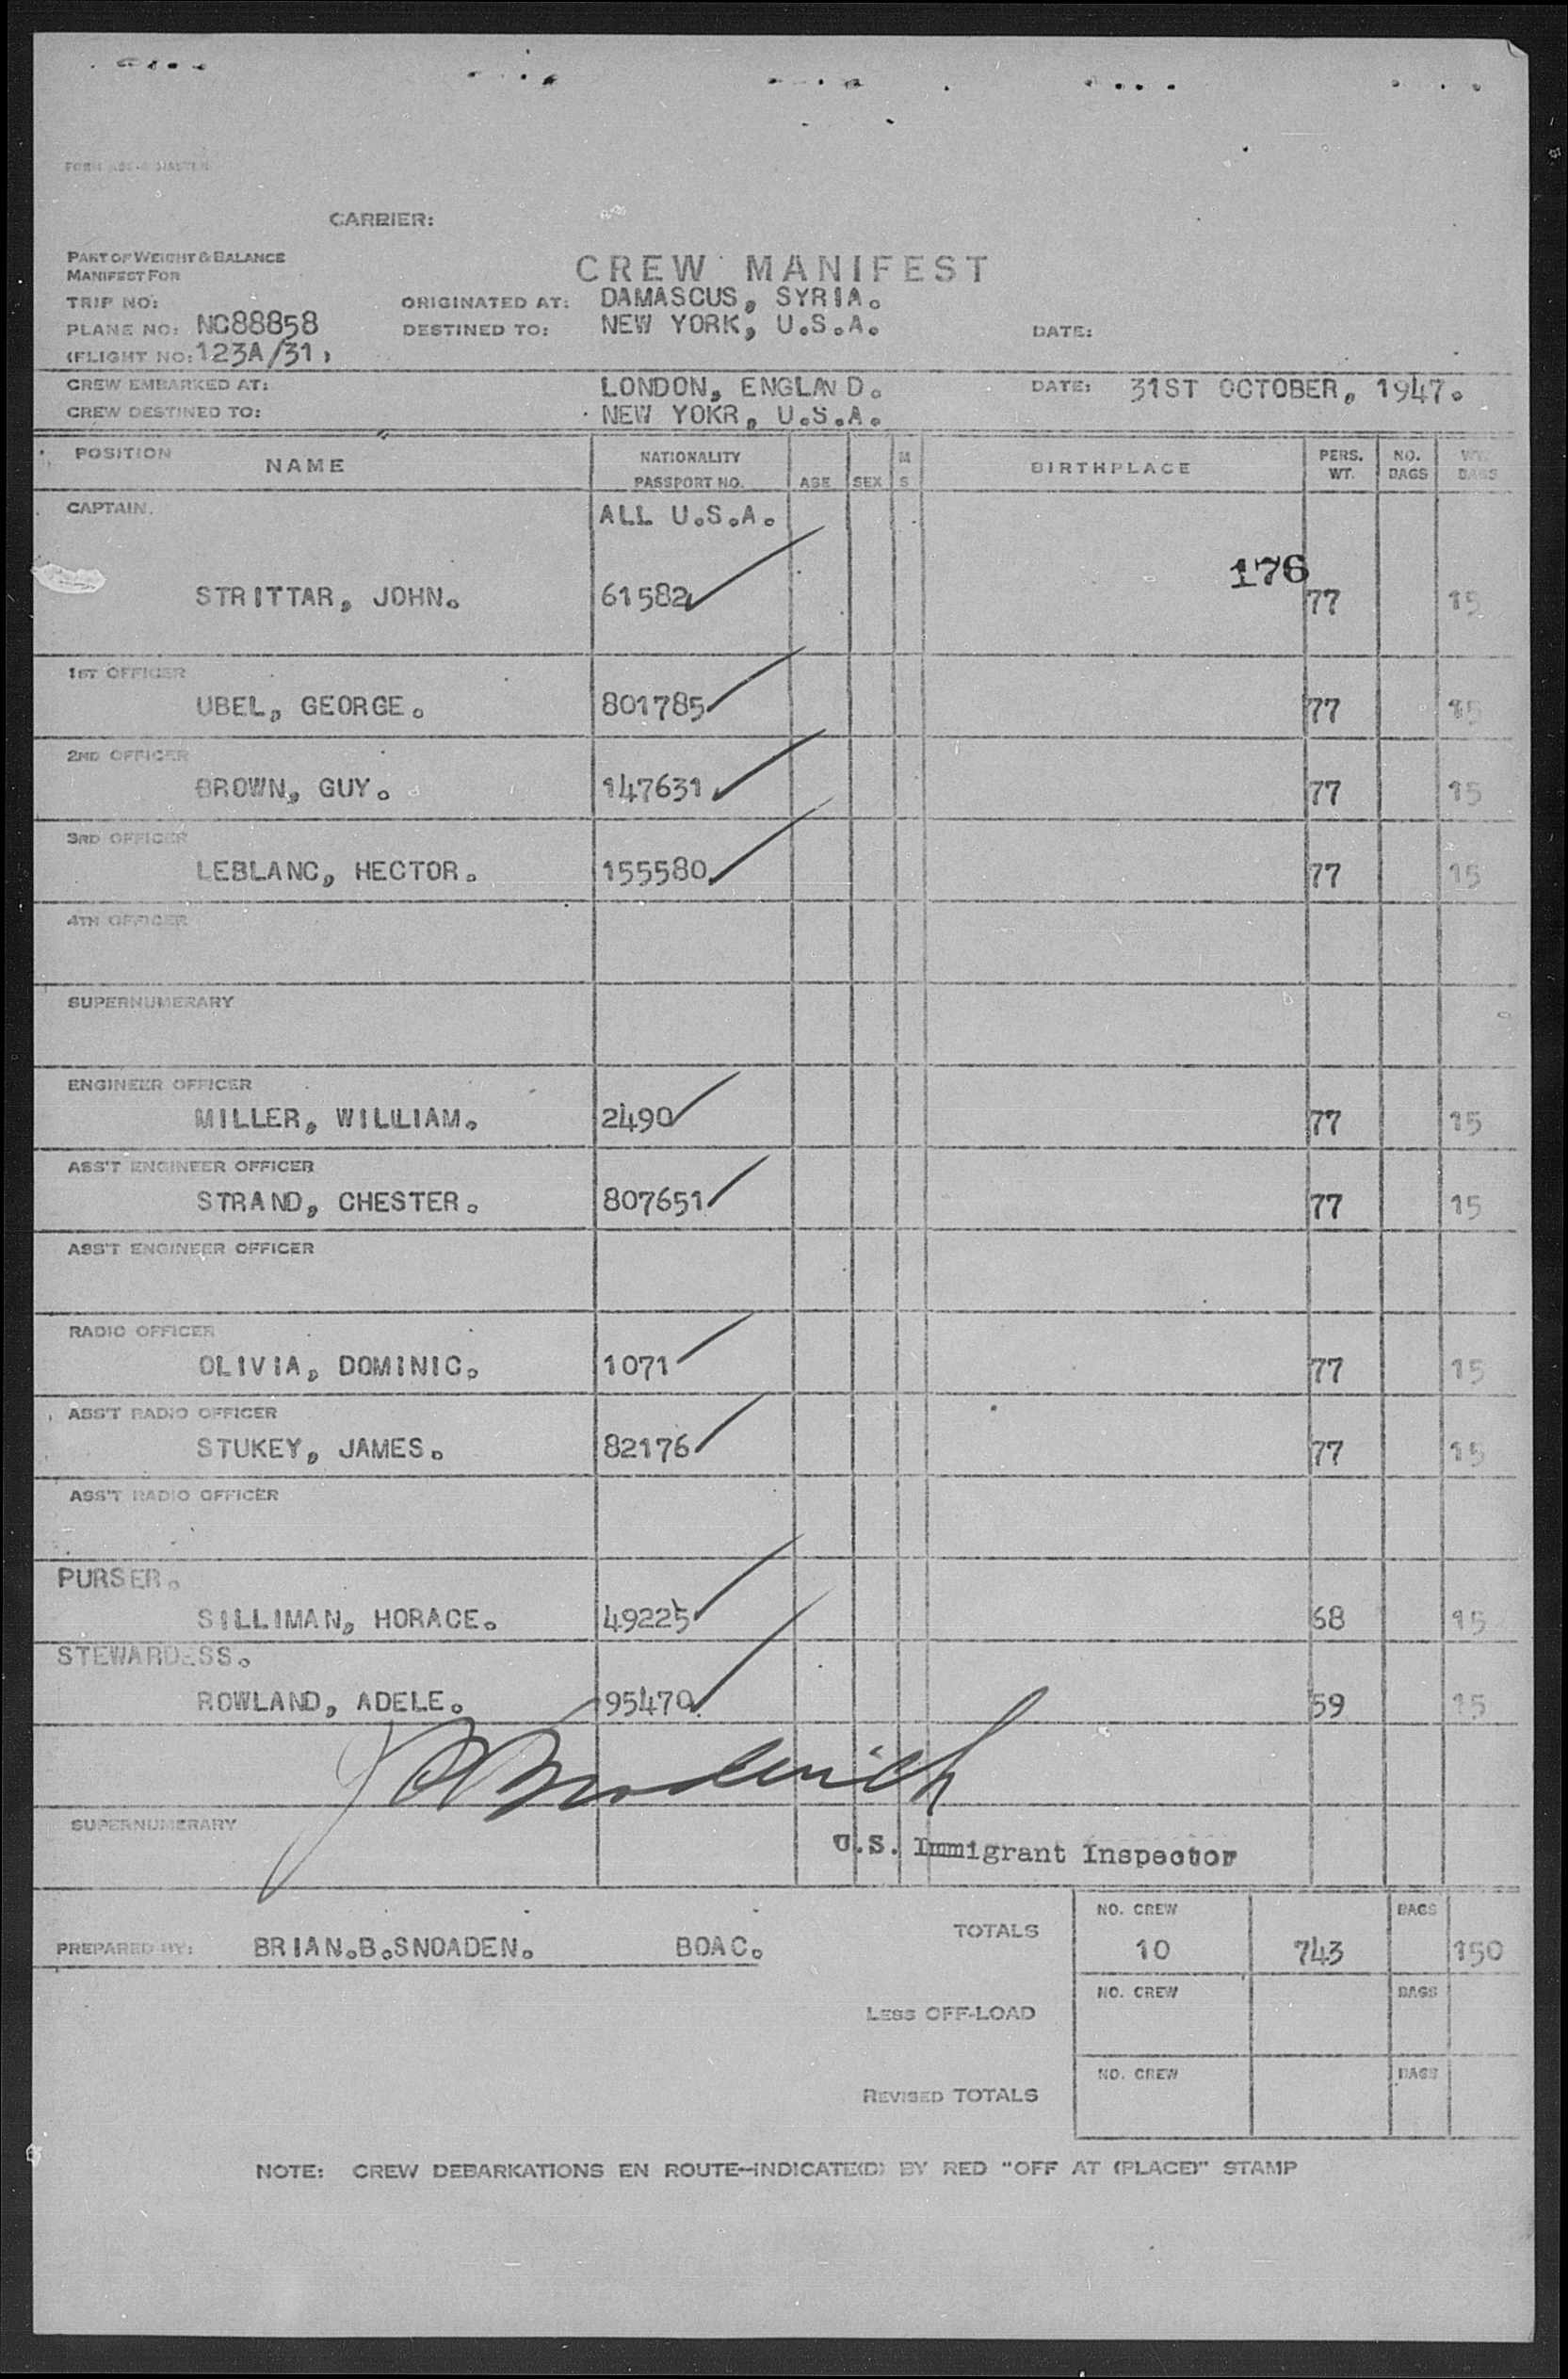 CARRIER:
PART OF WEIGHT & BALANCE
MANIFEST FOR
CREW MANIFEST
TRIP NO: ORIGINATED AT: DAMASCUS, SYRIA.
PLANE NO: NC88858 DESTINED TO: NEW YORK, U.S.A. DATE:
(FLIGHT NO: 123A/31)
CREW EMBARKED AT: LONDON, ENGLAND. DATE: 31ST OCTOBER, 1947.
CREW DESTINED TO: NEW YOKR, U.S.A.
POSITION NAME NATIONALITY PASSPORT NO. AGE SEX M S BIRTHPLACE PERS. WT. NO. BAGS WT. BAGS
CAPTAIN. ALL U.S.A.
176
STRITTAR, JOHN. 61582 77 15
1ST OFFICER
UBEL, GEORGE. 801785 77 15
2ND OFFICER
BROWN, GUY. 147631 77 15
3RD OFFICER
LEBLANC, HECTOR. 155580 77 15
4TH OFFICER
SUPERNUMERARY
ENGINEER OFFICER
MILLER, WILLIAM. 2490 77 15
ASS'T ENGINEER OFFICER
STRAND, CHESTER. 807651 77 15
ASS'T ENGINEER OFFICER
RADIO OFFICER
OLIVIA, DOMINIC. 1071 77 15
ASS'T RADIO OFFICER
STUKEY, JAMES. 82176 77 15
ASS'T RADIO OFFICER
PURSER.
SILLIMAN, HORACE. 49225 68 15
STEWARDESS.
ROWLAND, ADELE. 95470 59 15
SUPERNUMERARY
U.S. Immigrant Inspector
NO. CREW BAGS
PREPARED BY: BRIAN.B.SNOADEN. BOAC. TOTALS 10 743 150
NO. CREW BAGS
LESS OFF-LOAD
NO. CREW BAGS
REVISED TOTALS
NOTE: CREW DEBARKATIONS EN ROUTE—INDICATE(D) BY RED "OFF AT (PLACE)" STAMP